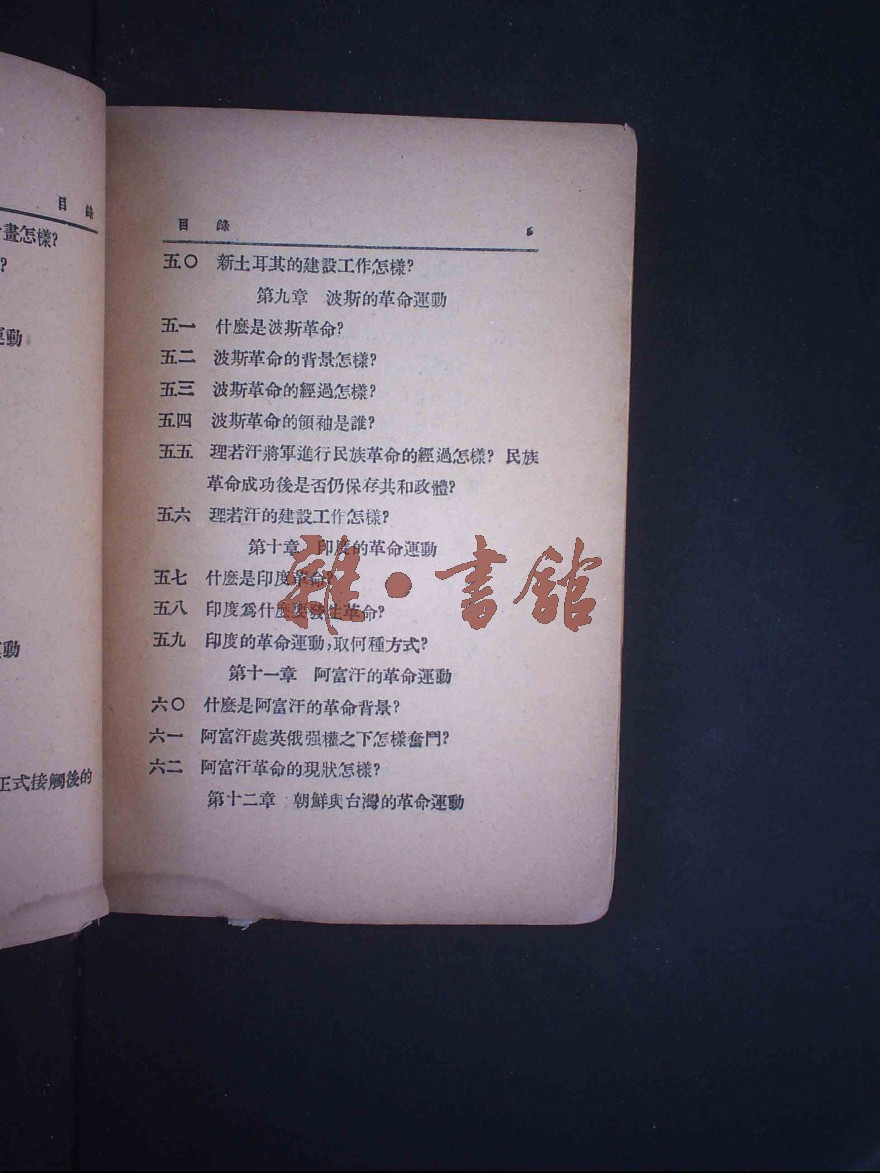 目錄
畫怎樣?
?
動
動
正式接觸後的
目錄 5
五〇 新土耳其的建設工作怎樣?
第九章 波斯的革命運動
五一 什麼是波斯革命?
五二 波斯革命的背景怎樣?
五三 波斯革命的經過怎樣?
五四 波斯革命的領袖是誰?
五五 理若汗將軍進行民族革命的經過怎樣? 民族
革命成功後是否仍保存共和政體?
五六 理若汗的建設工作怎樣?
第十章 印度的革命運動
五七 什麼是印度革命?
五八 印度爲什麼要發生革命?
五九 印度的革命運動,取何種方式?
第十一章 阿富汗的革命運動
六〇 什麼是阿富汗的革命背景?
六一 阿富汗處英俄强權之下怎樣奮鬥?
六二 阿富汗革命的現狀怎樣?
第十二章 朝鮮與台灣的革命運動
雜·書館